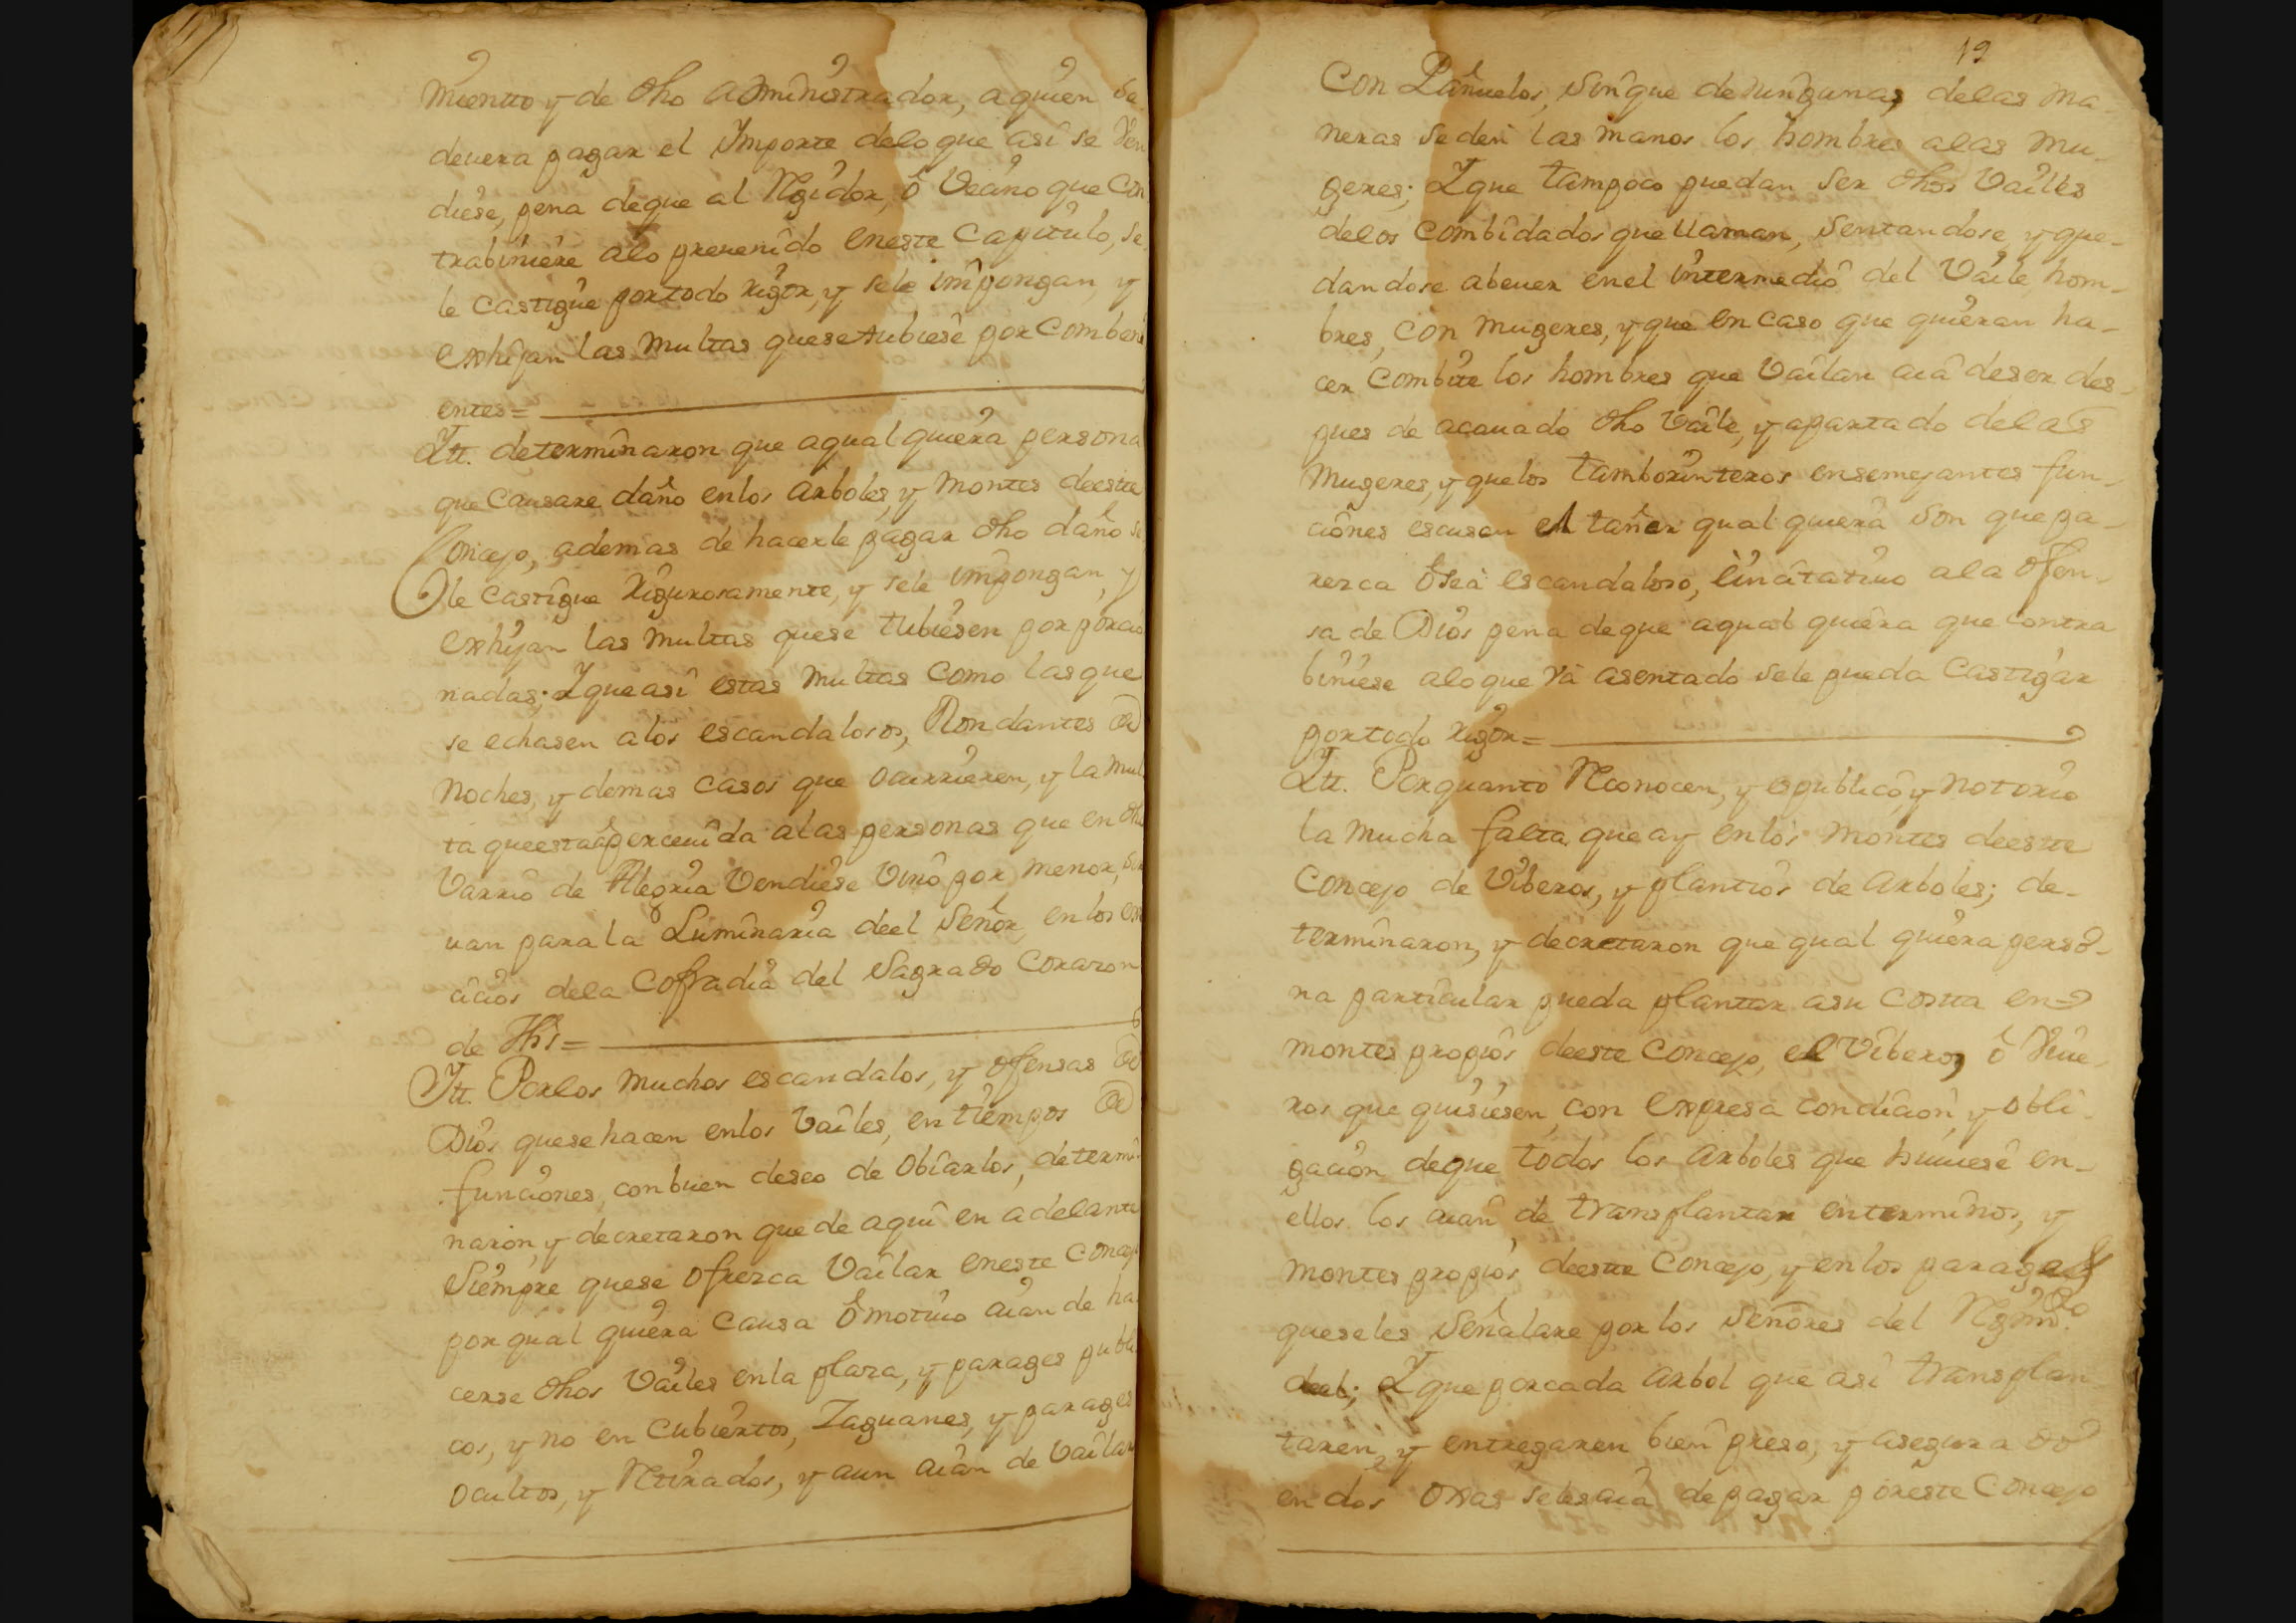 miento y de dho Administrador, a quien se
devera pagar el Importe delo que asi se Ven
diese, pena deque al Rgidor, ô Vecino que Con
trabiniere alo prevenido eneste Capitulo, se
le Castigue portodo rigor, y sele impongan, y
exhijan las multas quesetubiese por Combeni
entes=
Itt. determinaron que aqualquiera persona
que Causare daño enlos arboles, y montes deeste
Concejo, ademas de hacerle pagar dho daño se
le castigue rigurosamente, y sele impongan, y
exhijan las multas quese tubiesen por porcio
nadas; Y queasi estas multas Como lasque
se echasen alos escandalosos, Rondantes de
noches, y demas casos que ocurrieren, y la mul
ta queestaapercevida alas personas que en dho
Varrio de Alegria Vendiese Vino por menor, sir
van para la Luminaria deel Señor, en los exer
cicios dela Cofradia del Sagrado Corazon
de Jhs=
Itt. Porlos muchos escandalos, y ofensas de
Dios quese hacen enlos Vailes, en tiempos de
funciones, conbuen deseo de obiarlos, determi
naron, y decretaron que de aqui en adelante
Siempre quese ofrezca Vailar eneste Concejo
por qual quiera causa ô motivo aian de ha
cerse dhos Vailes enla plaza, y parages publi
cos, y no en Cubiertos, Zaguanes, y parages
ocultos, y Rtirados, y aun aian de Vailar
19
Con Pañuelos, sinque de ningunas delas ma-
neras se den las manos los hombres alas mu-
geres; Y que tampoco puedan ser dhos Vailes
delos Combidados que llaman, sentandose, y que-
dandose abever enel intermedio del Vaile hom-
bres, con mugeres, y que en caso que quieran ha-
cer Combite los hombres que Vailan aia deser des-
pues de acavado dho Vaile, y apartado delas
mugeres, y quelos tamborinteros ensemejantes fun-
ciones escusen el tañer qual quiera son que pa-
rezca ô sea escandaloso, è incitativo ala ofen-
sa de Dios pena deque aqual quiera que contra
biniese aloque va asentado sele pueda Castigar
portodo rigor=
Itt. Porquanto Rconocen, y espublico, y notorio
la mucha falta que ay enlos montes deeste
Concejo de Viberos, y plantios de arboles; de-
terminaron, y decretaron que qual quiera perso-
na particular pueda plantar asu costta en
montes propios deeste Concejo, el Vibero, ô Vive-
ros que quisiesen, con expresa condicion, y obli-
gacion deque todos los arboles que huviese en-
ellos los aian de transplantar enterminos, y
montes propios deeste Concejo, y enlos parages
queseles señalare por los señores del Rgimto.
deel; Y que porcada arbol que asi transplan
taren, y entregaren bien preso, y asegurado
en dos oxas selesaia de pagar poreste Concejo